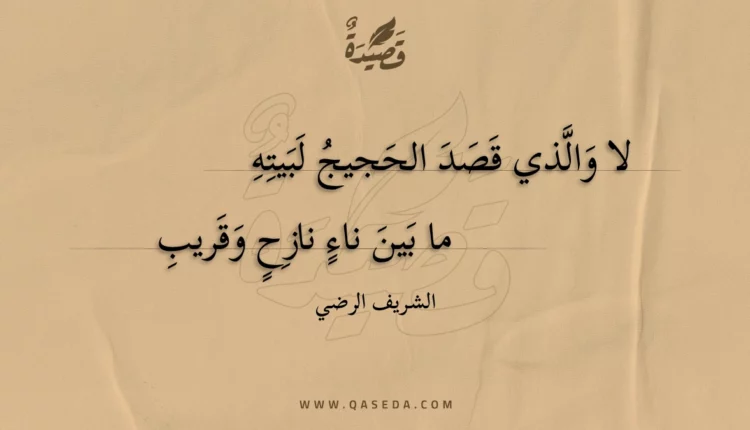 قَصِيدَةٌ
لا وَالَّذي قَصَدَ الحَجيجُ لَبَيتِهِ
ما بَينَ ناءٍ نازِحٍ وَقَريبِ
الشريف الرضي
WWW.QASEDA.COM